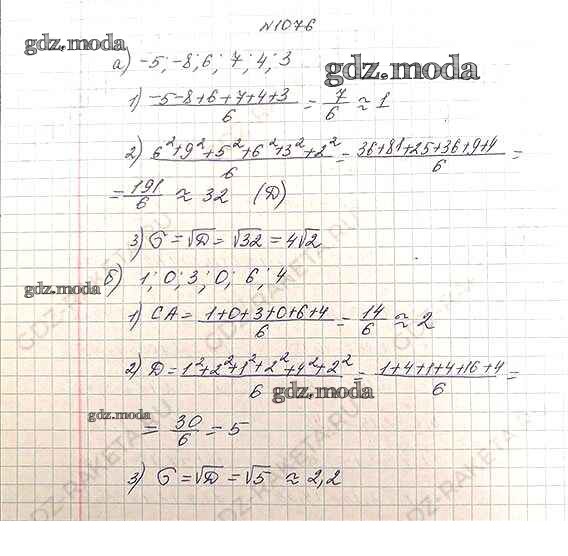 №1076
gdz.moda
а) -5; -8; 6; 7; 4; 3
gdz.moda
1) (-5-8+6+7+4+3)/6 = 7/6 ≈ 1
2) (6²+9²+5²+6²+3²+2²)/6 = (36+81+25+36+9+4)/6 =
= 191/6 ≈ 32 (D)
3) σ = √D = √32 = 4√2
gdz.moda
б) 1; 0; 3; 0; 6; 4
1) СА = (1+0+3+0+6+4)/6 = 14/6 ≈ 2
2) D = (1²+2²+1²+2²+4²+2²)/6 = (1+4+1+4+16+4)/6 =
gdz.moda
gdz.moda
= 30/6 = 5
3) σ = √D = √5 ≈ 2,2
GDZ-RAKETA.RU
GDZ-RAKETA.RU
GDZ-RAKETA.RU
GDZ-RAKETA.RU